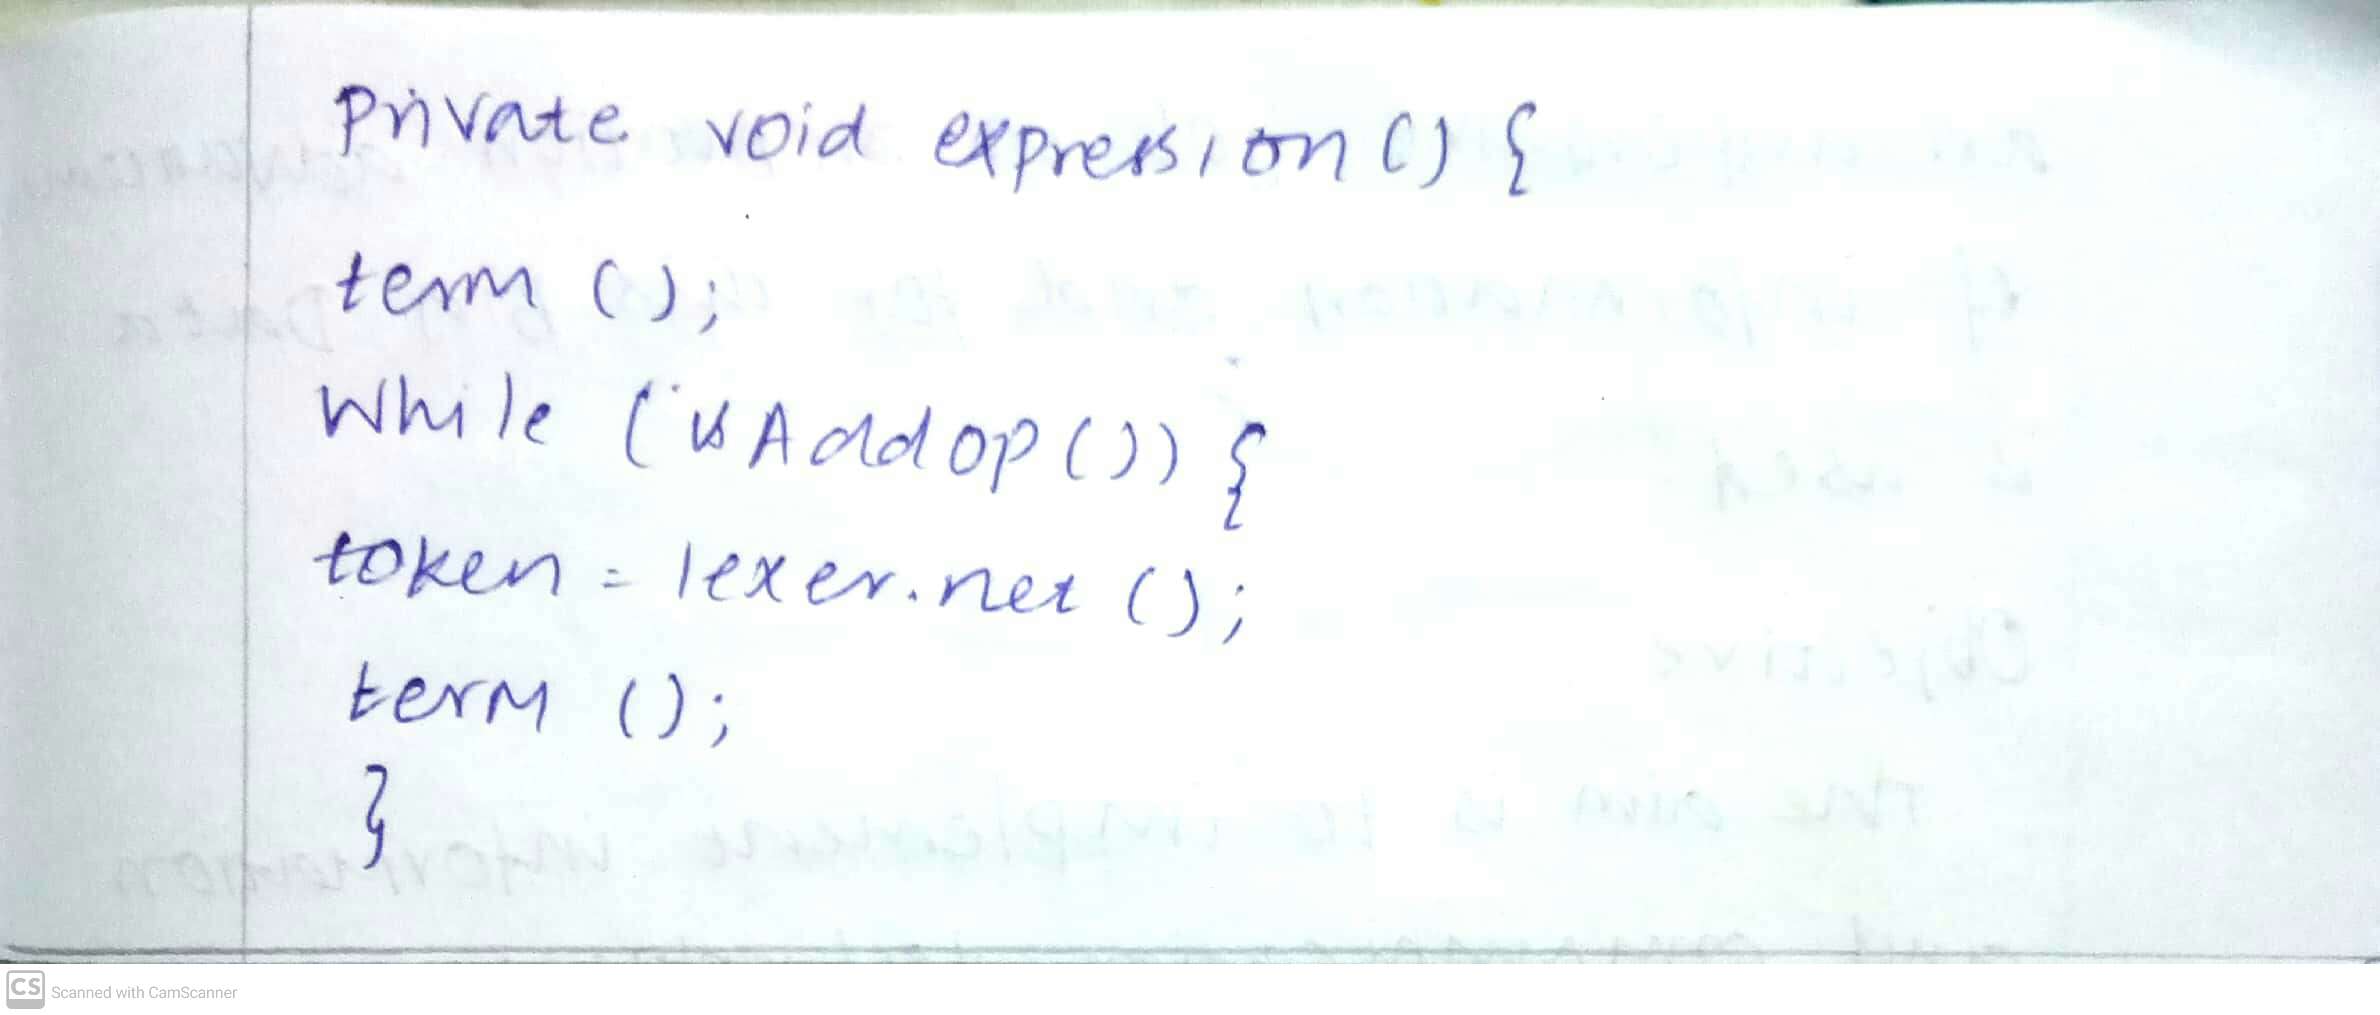 private void expression () {
term ();
while (isAddop ()) {
token = lexer.net ();
term ();
}
CS Scanned with CamScanner